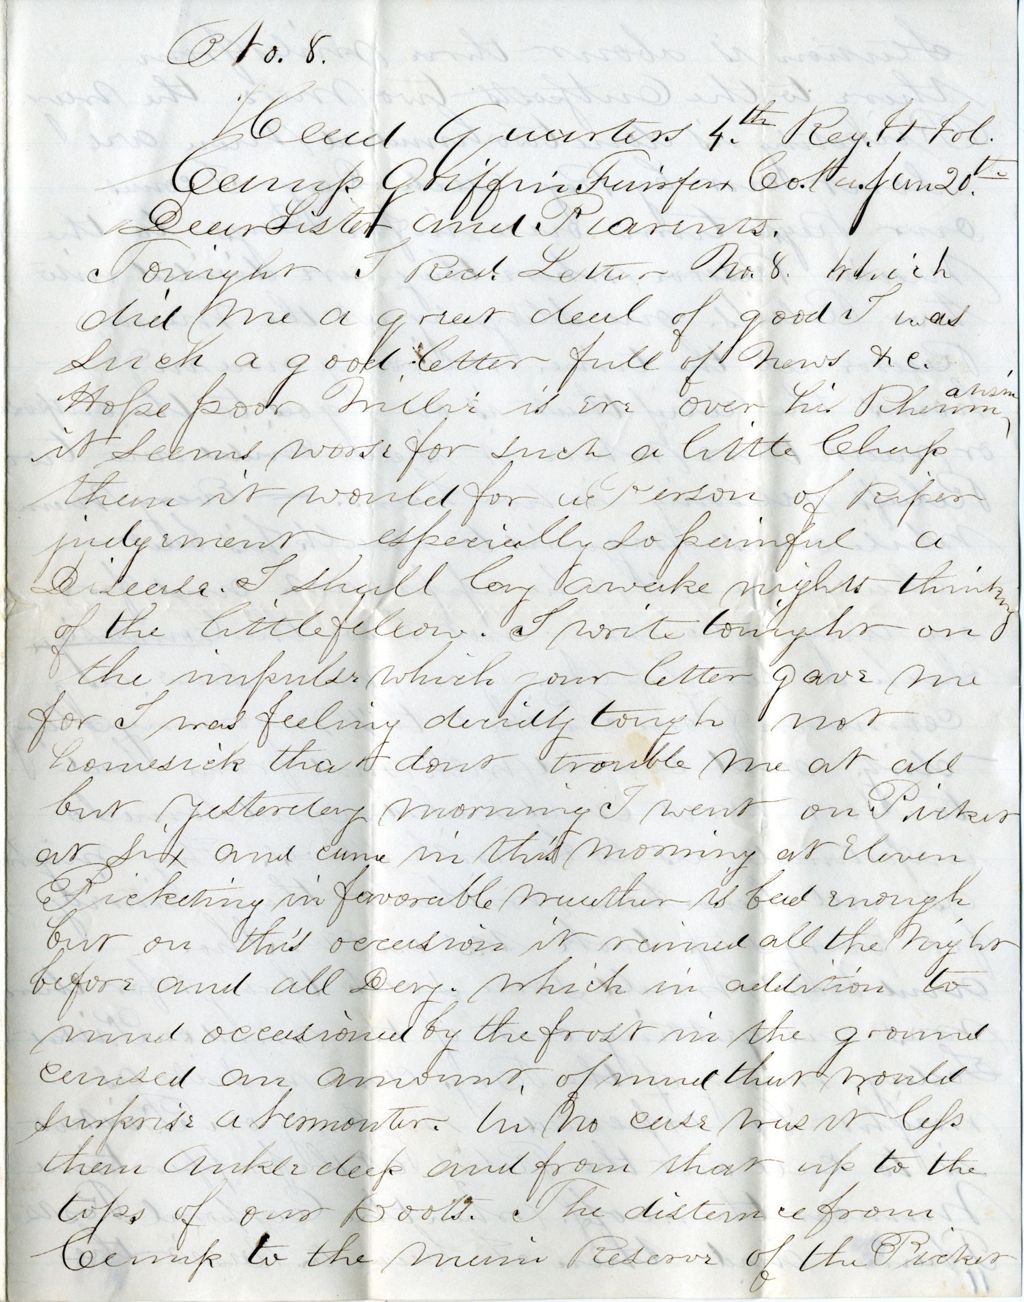 No. 8.
Head Quarters 4.th Reg. Vt Vol.
Camp Griffin Fairfax Co. Va. Jan 20.th
Dear Sister and Parents.
Tonight I Recd. Letter No. 8. which
did me a great deal of good I was
such a good letter full of News &c.
Hope poor Willie is ere over his Rheumatism
it seems worse for such a little Chap
than it would for a Person of Riper
judgement especially so painful a
Disease. I shall lay awake nights thinking
of the little fellow. I write tonight on
the impulse which your letter gave me
for I was feeling decidly tough not
homesick that dont trouble me at all
but yesterday morning I went on Picket
at six and came in this morning at Eleven
Picketing in favorable weather is bad enough
but on this occasion it rained all the Night
before and all Day. which in addition to
mud occasioned by the frost in the ground
caused an amount, of mud that would
surprise a Vermonter. In No case was it less
than Ankle deep and from that up to the
tops of our Boots. The distance from
Camp to the main Reserve of the Picket